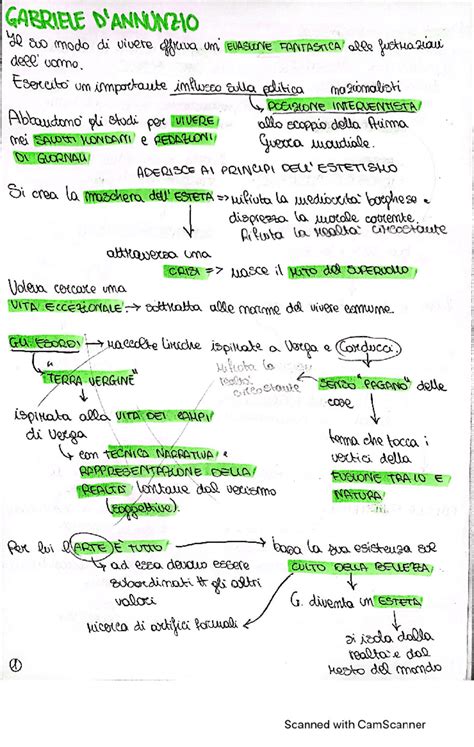 GABRIELE D'ANNUNZIO
Il suo modo di vivere offriva un' EVASIONE FANTASTICA alle frustrazioni
dell'uomo.
Esercitò un importante influsso sulla politica nazionalisti
POSIZIONE INTERVENTISTA
Abbandonò gli studi per VIVERE allo scoppio della Prima
nei SALOTTI MONDANI e REDAZIONI Guerra mondiale.
DI GIORNALI
ADERISCE AI PRINCIPI DELL'ESTETISMO
Si crea la maschera dell'ESTETA => rifiuta la mediocrità borghese e
disprezza la morale corrente.
Rifiuta la realtà circostante
attraversa una
CRISI => nasce il MITO del SUPERUOMO
Voleva cercare una
VITA ECCEZIONALE → sottratta alle norme del vivere comune.
GLI ESORDI → raccolte liriche ispirate a Verga e Carducci.
rifiuta la
realtà
circostante
"TERRA VERGINE"
SENSO "PAGANO" delle
cose
ispirata alla VITA DEI CAMPI
di Verga
tema che tocca i
vertici della
FUSIONE TRA IO E
NATURA
↳ con TECNICA NARRATIVA e
RAPPRESENTAZIONE DELLA
REALTÀ lontane dal verismo
(soggettive).
Per lui l'ARTE È TUTTO
↳ ad essa devono essere
subordinati gli altri
valori
ricerca di artifici formali
basa la sua esistenza sul
CULTO DELLA BELLEZZA
G. diventa un ESTETA
si isola dalla
realtà e dal
resto del mondo
1
Scanned with CamScanner